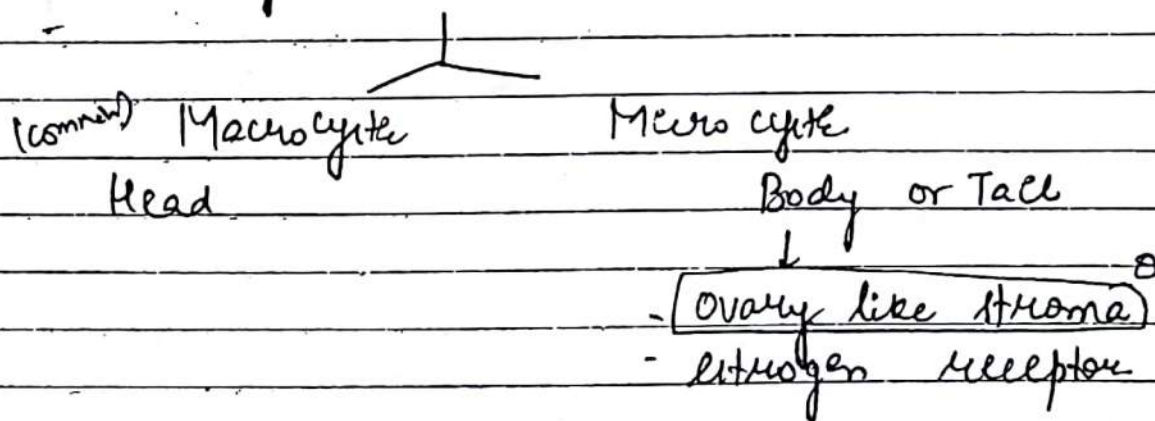 (common) Macrocystic Microcystic
Head Body or Tail
↓
- ovary like stroma
- estrogen receptor